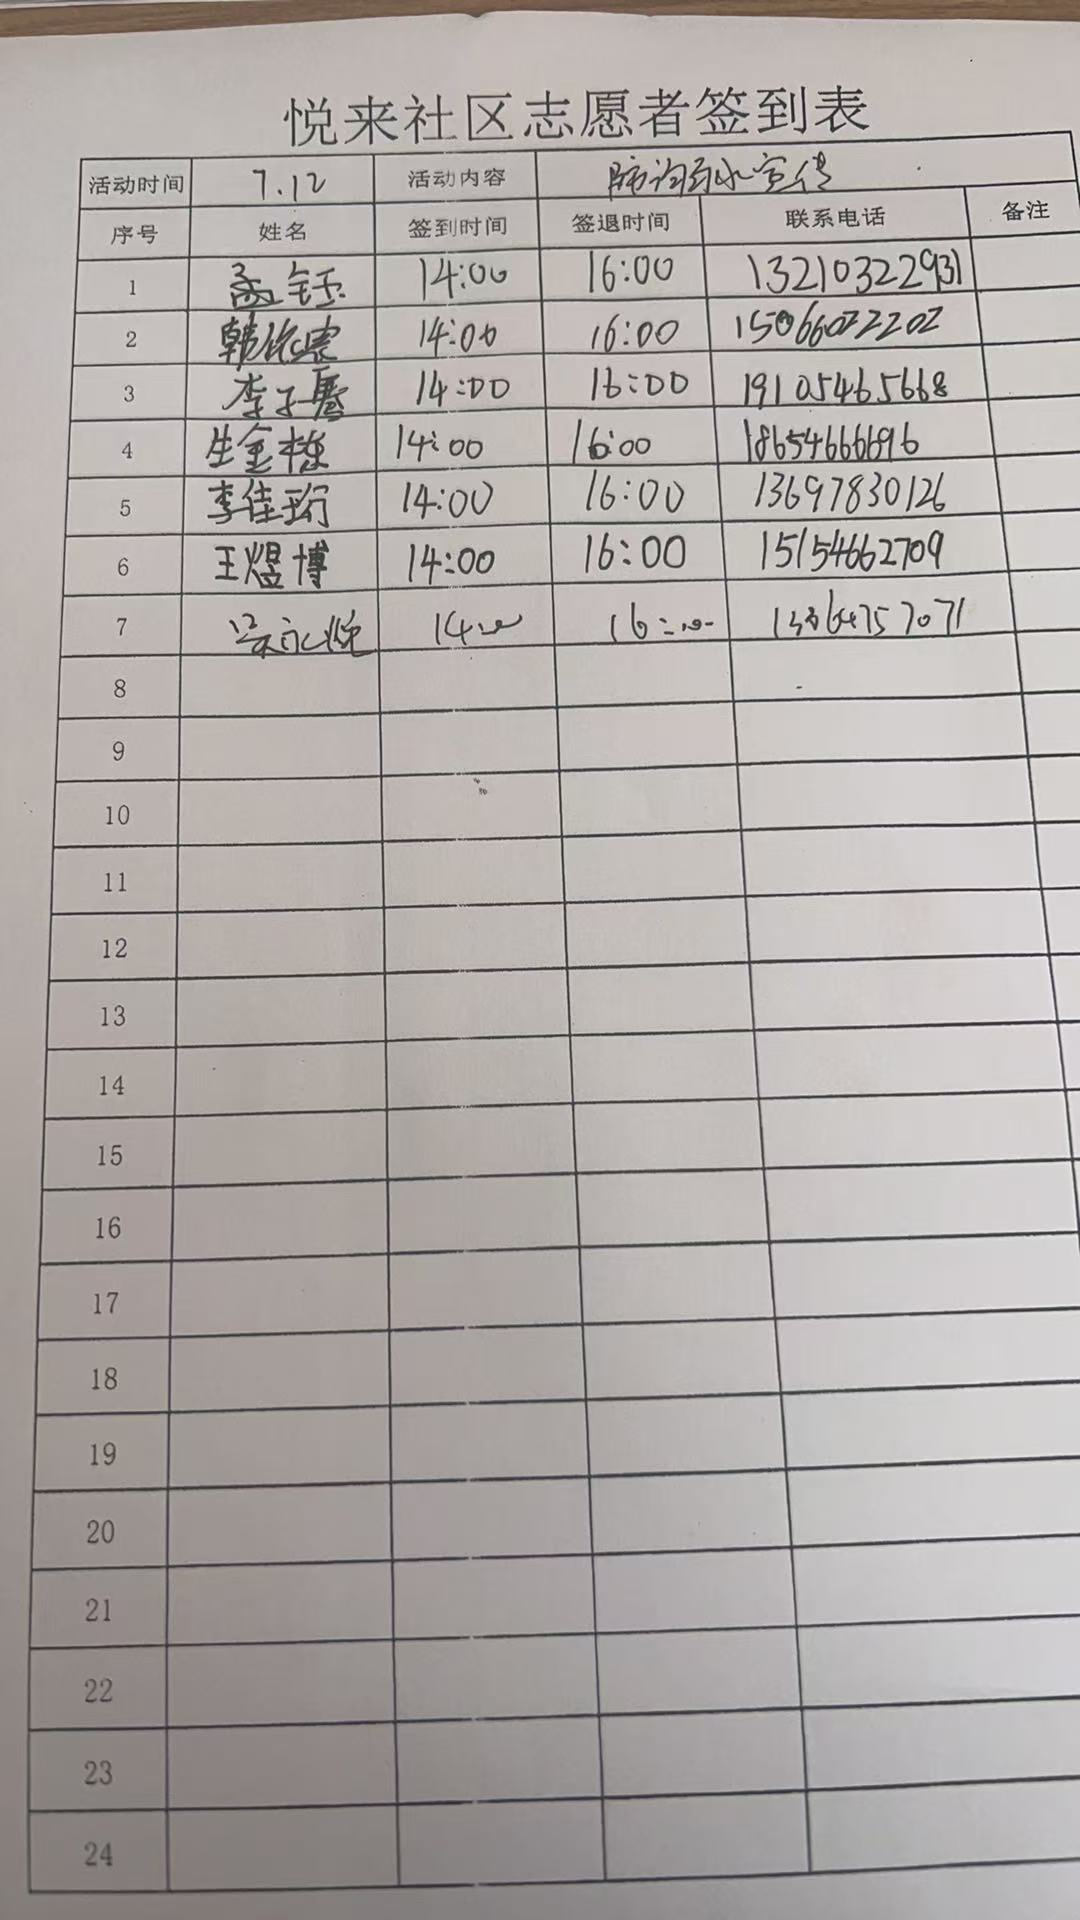 悦来社区志愿者签到表
活动时间 7.12 活动内容 防溺水宣传
序号 姓名 签到时间 签退时间 联系电话 备注
1 孟钰 14:00 16:00 13210322931
2 韩 14:00 16:00 15066022202
3 李子 14:00 16:00 19105465668
4 生金栋 14:00 16:00 18654666696
5 李佳珂 14:00 16:00 13697830126
6 王煜博 14:00 16:00 15154662709
7 14:00 16:00
8
9
10
11
12
13
14
15
16
17
18
19
20
21
22
23
24